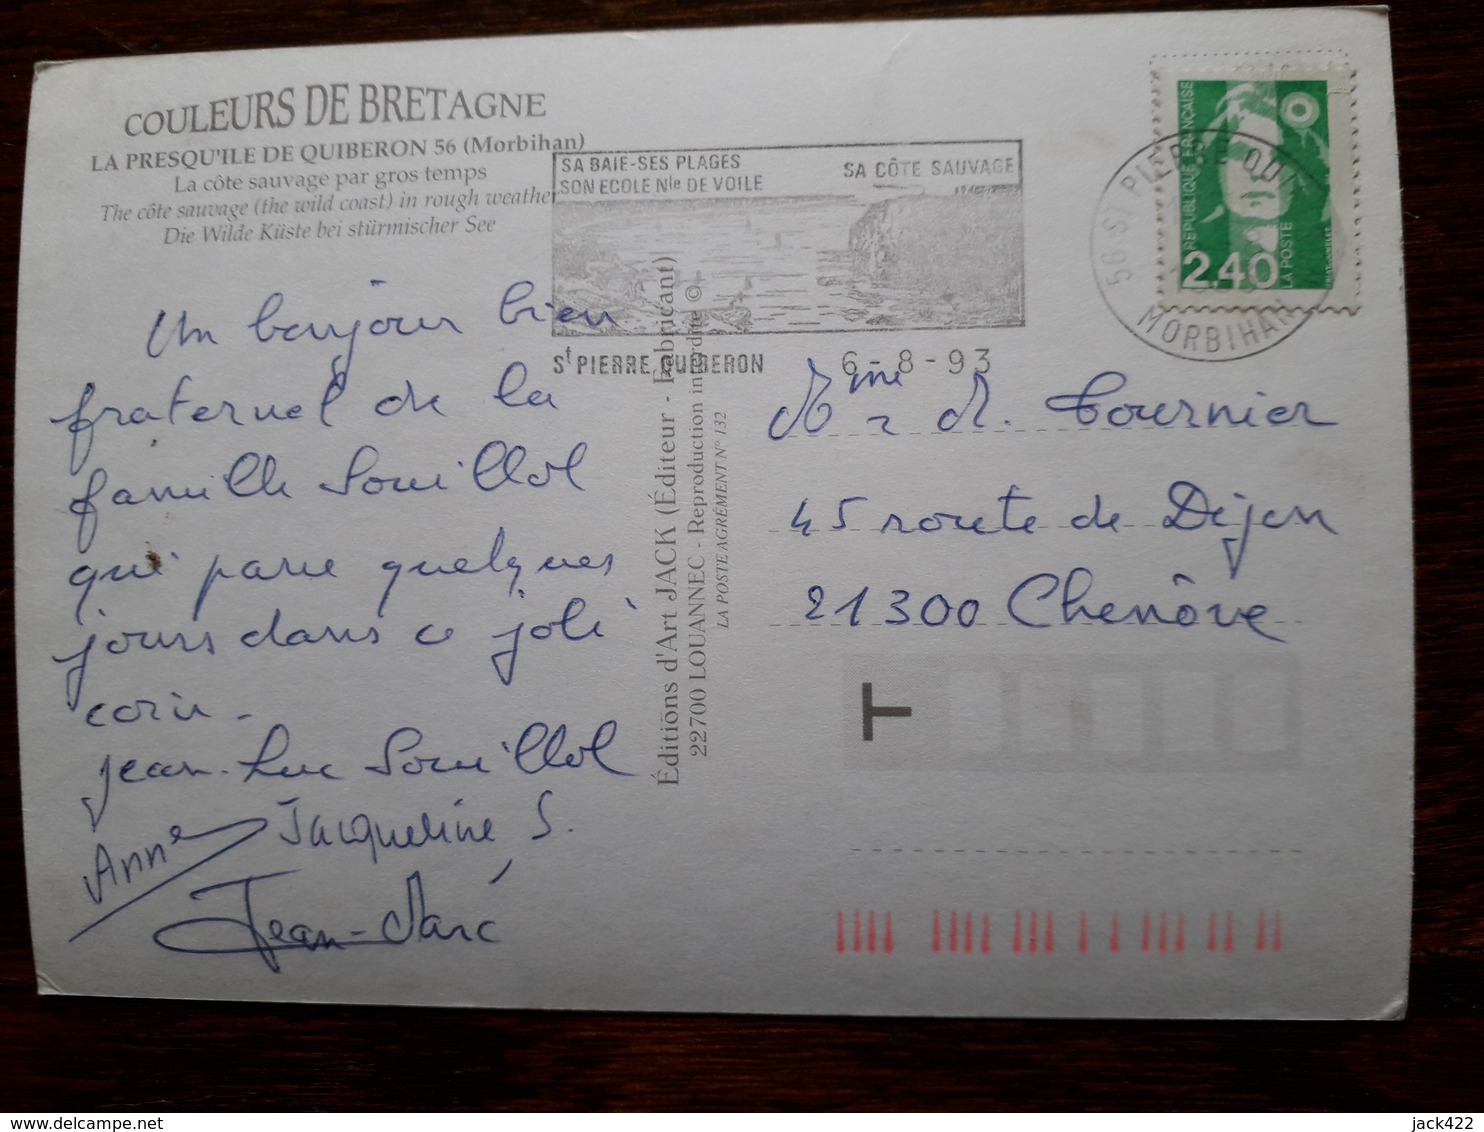 COULEURS DE BRETAGNE
LA PRESQU'ILE DE QUIBERON 56 (Morbihan)
La côte sauvage par gros temps
The côte sauvage (the wild coast) in rough weather
Die Wilde Küste bei stürmischer See
SA BAIE-SES PLAGES
SON ECOLE Nle DE VOILE
SA CÔTE SAUVAGE
St PIERRE QUIBERON 6-8-93
56 ST PIERRE QUI
MORBIHAN
REPUBLIQUE FRANÇAISE
LA POSTE
2,40
Un bonjour bien
fraternel de la
famille Souillol
qui passe quelques
jours dans ce joli
coin.
Jean-Luc Souillol
Anne Jacqueline S.
Jean-Marc
Éditions d'Art JACK (Éditeur - Fabricant)
22700 LOUANNEC - Reproduction interdite ©
LA POSTE AGRÉMENT N° 132
Mme & M. Tournier
45 route de Dijon
21300 Chenôve
T
jack422